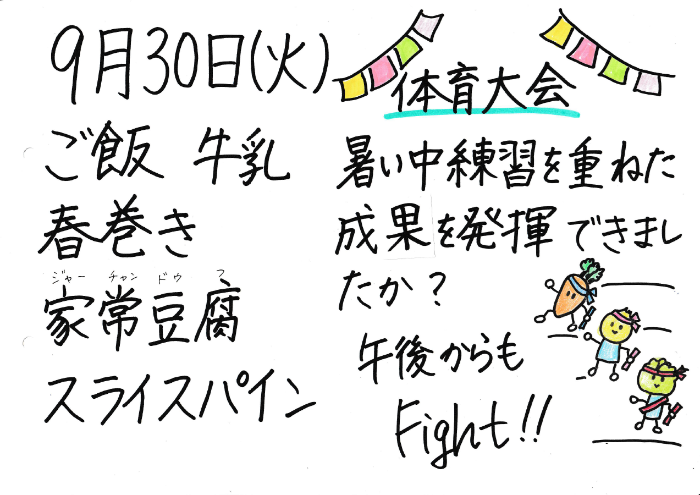 9月30日(火)
ご飯 牛乳
春巻き
ジャー チャン ドウ フ
家常豆腐
スライスパイン
体育大会
暑い中練習を重ねた
成果を発揮できまし
たか?
午後からも
Fight!!